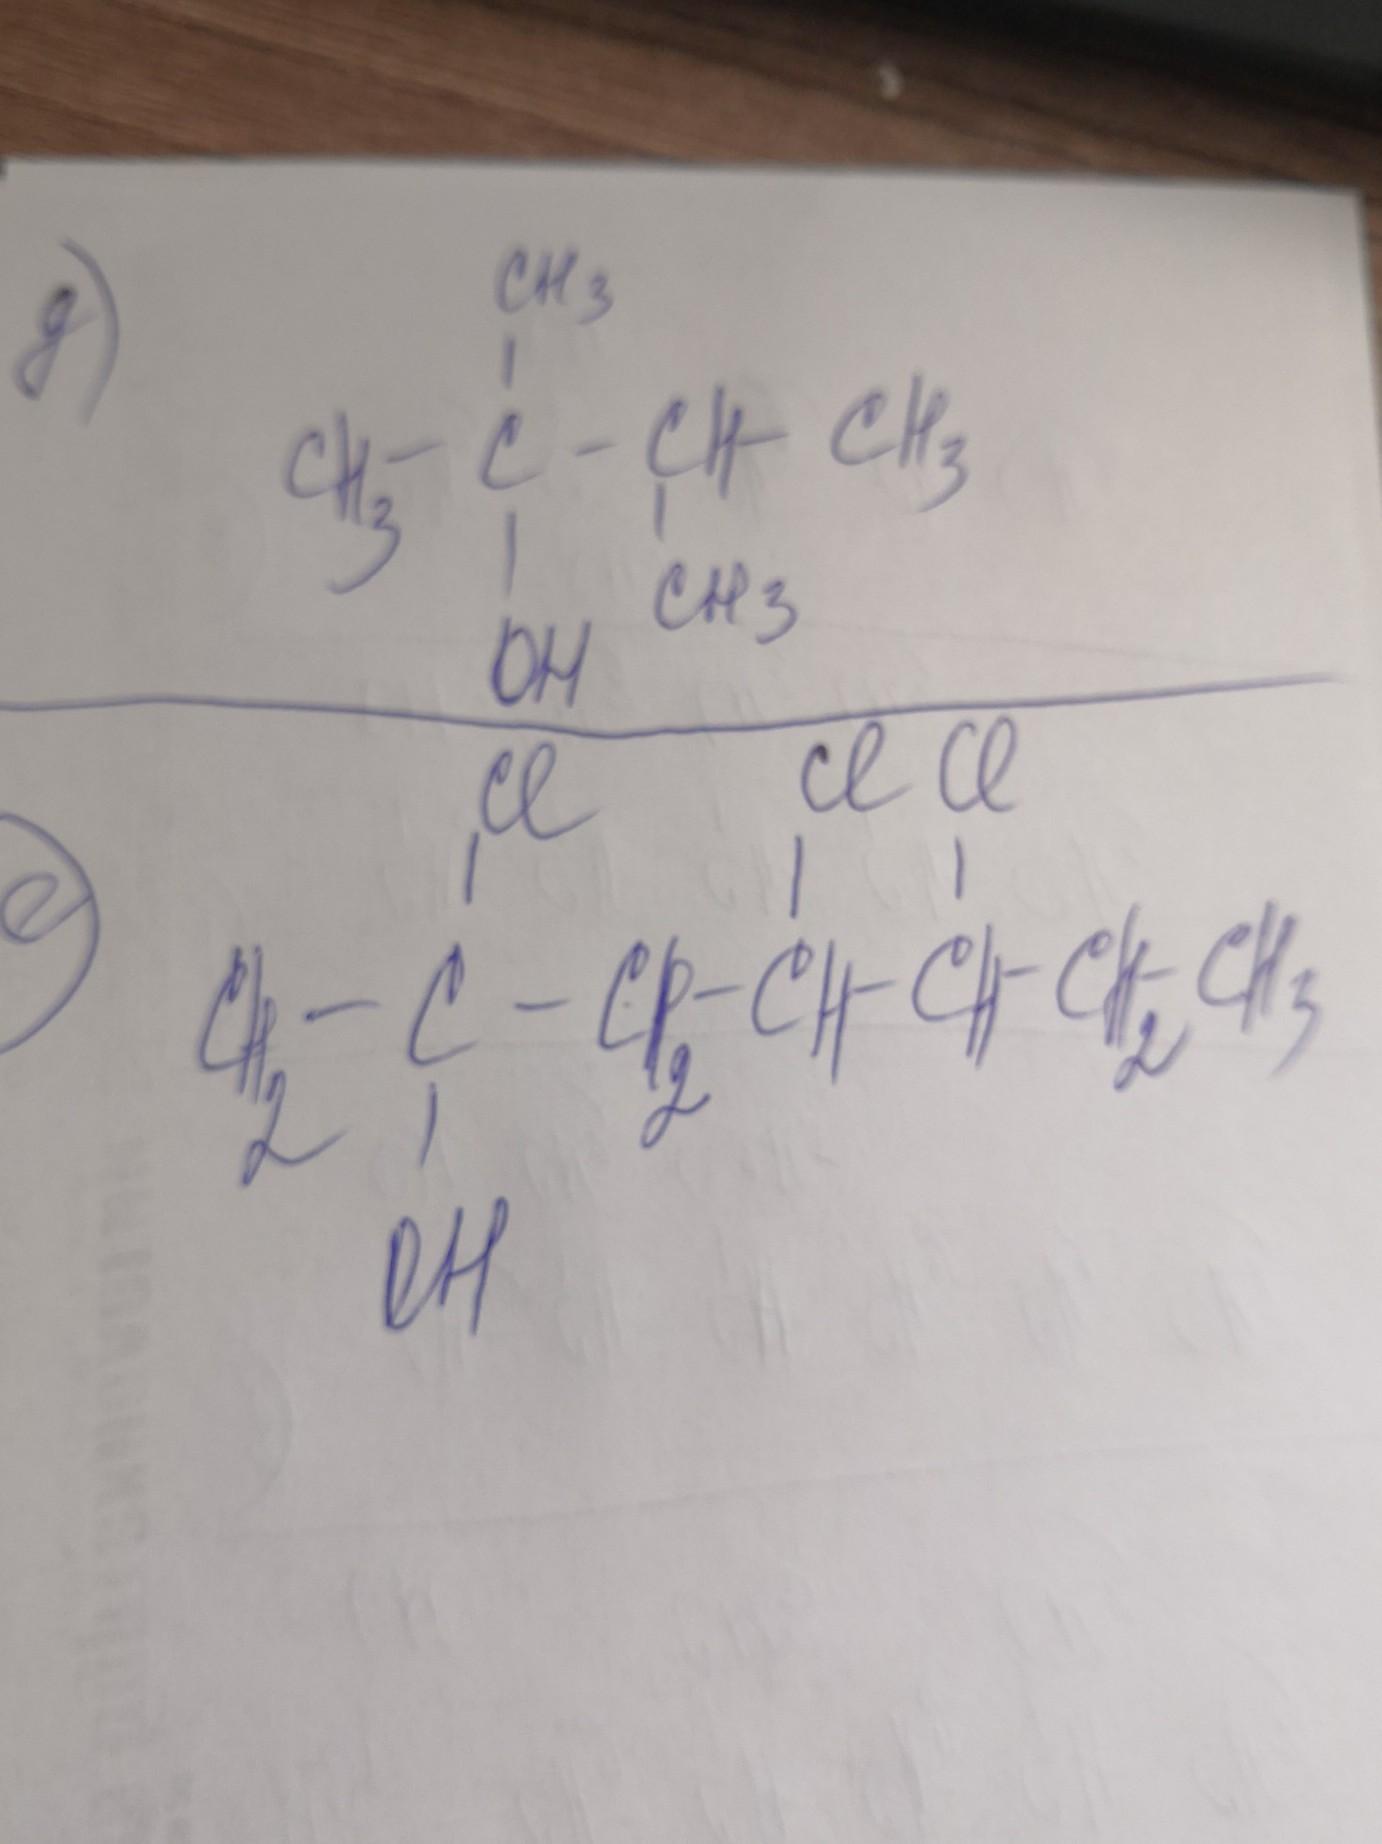 д)
CH3
CH3 - C - CH - CH3
OH CH3
е)
Cl Cl Cl
CH2 - C - CH2 - CH - CH - CH2 - CH3
OH